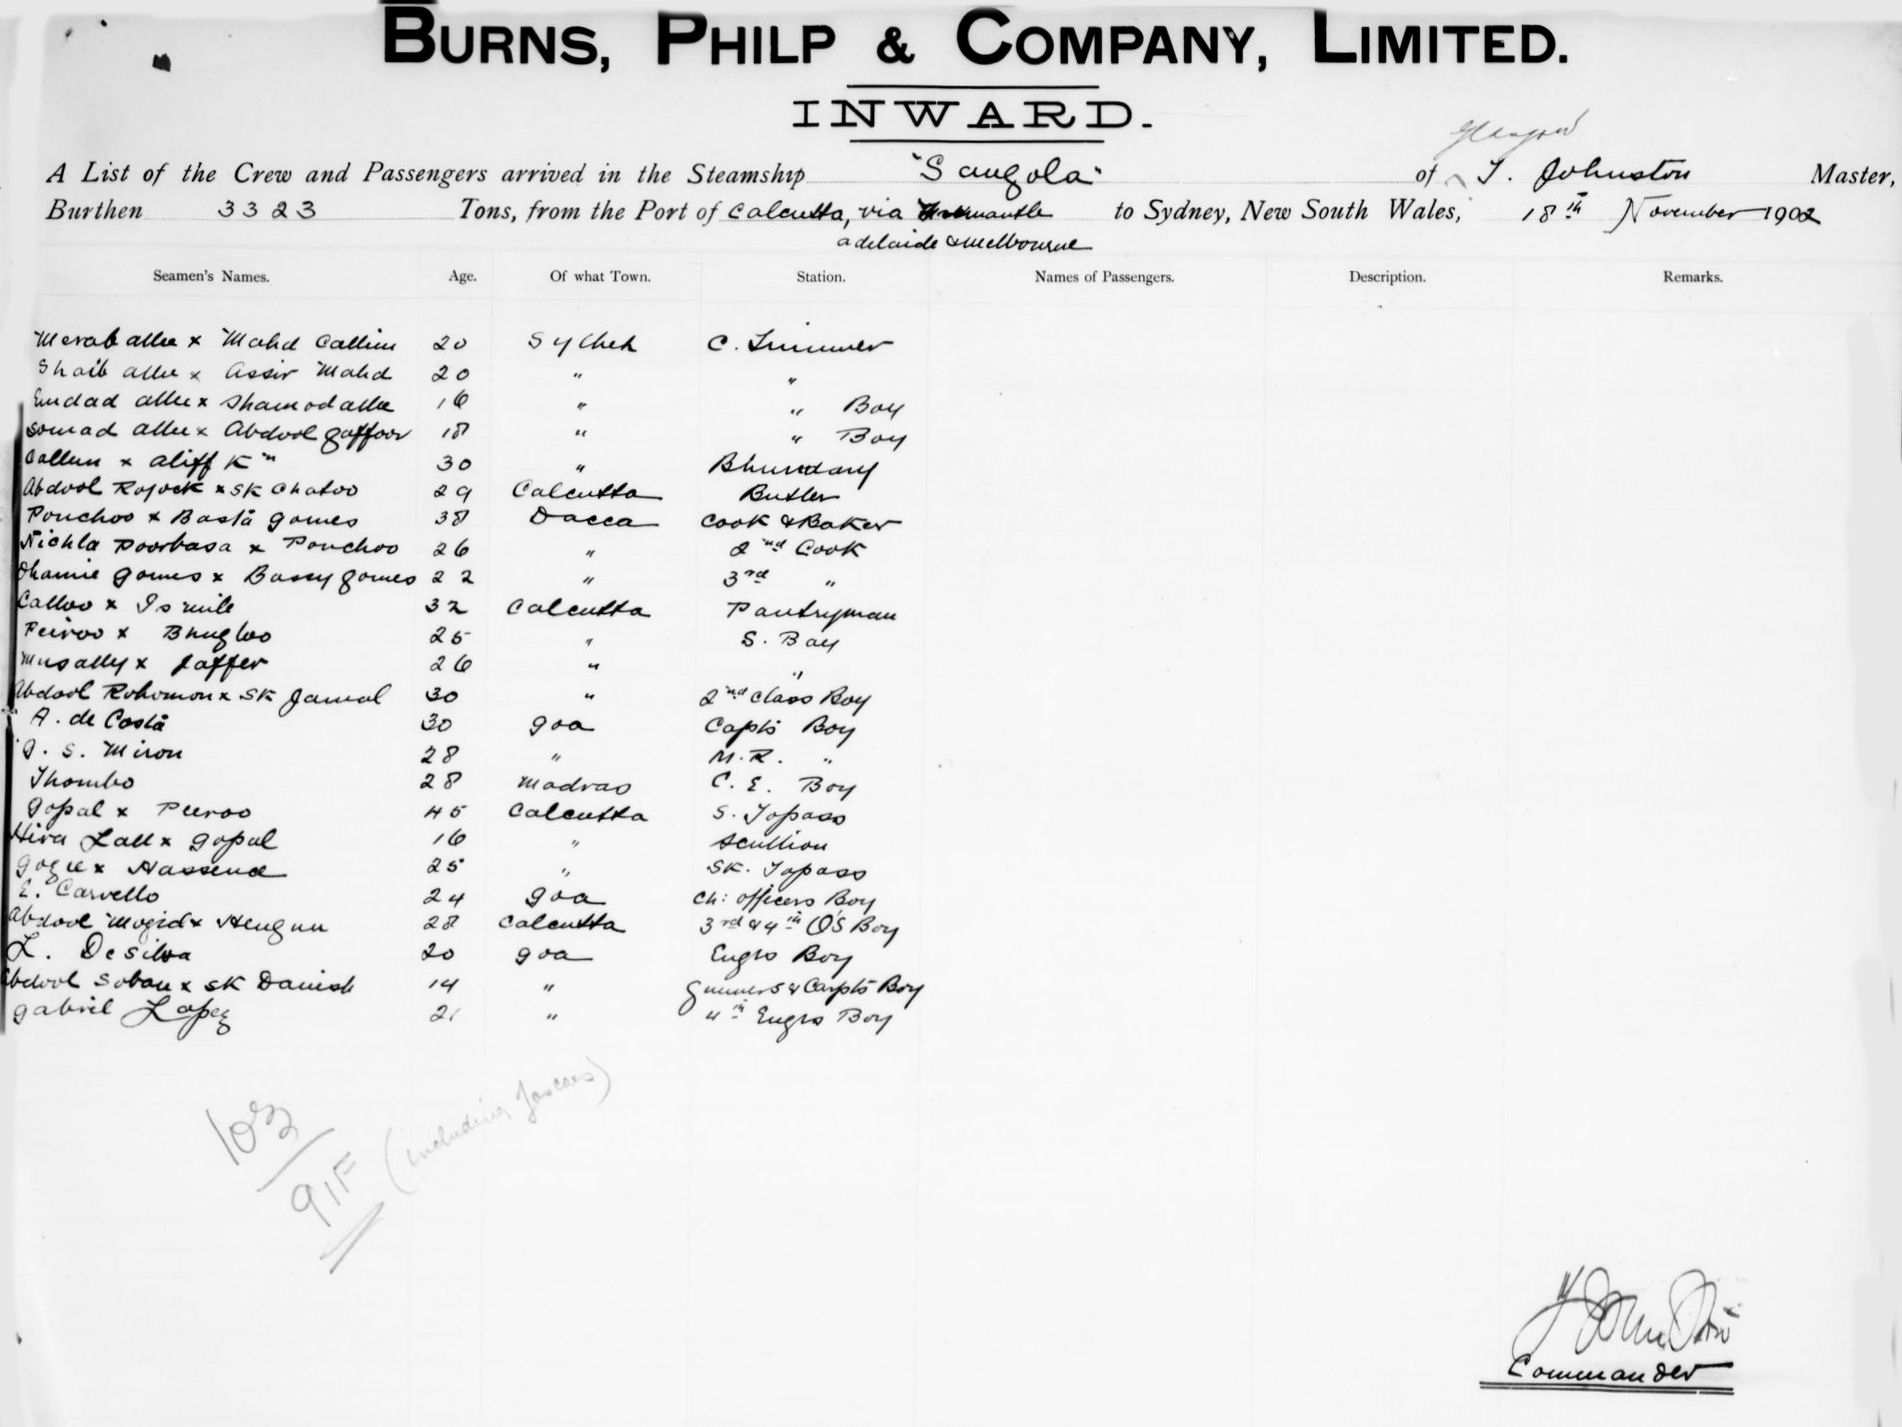 BURNS, PHILP & COMPANY, LIMITED.
INWARD.
Glasgow
A List of the Crew and Passengers arrived in the Steamship "Sangola" of J. Johnston Master,
Burthen 3323 Tons, from the Port of Calcutta, via Fremantle to Sydney, New South Wales, 18th November 1902
adelaide & Melbourne
Seamen's Names. Age. Of what Town. Station. Names of Passengers. Description. Remarks.
Merab allee x Mahd Callim 20 Sylhet C. Trimmer
Shaib allee x Assir Mahd 20 " "
Emdad allee x Shamod allee 16 " " Boy
Somad allee x Abdool Gaffoor 18 " " Boy
Callum x Aliff Kn 30 " Bhundary
Abdool Rojock x SK Chatoo 29 Calcutta Butler
Ponchoo x Basta Gomes 38 Dacca Cook & Baker
Nichla Poorbasa x Ponchoo 26 " 2nd Cook
Dhamie Gomes x Bassy Gomes 22 " 3rd "
Calloo x Ismile 32 Calcutta Pantryman
Peiroo x Bhugloo 25 " S. Boy
Musally x Jaffer 26 " "
Abdool Rohomon x SK Jamal 30 " 2nd Class Boy
A. de Costa 30 Goa Capts Boy
J. S. Miron 28 " M.R. "
Thombo 28 Madras C. E. Boy
Gopal x Peeroo 45 Calcutta S. Topass
Hira Lall x Gopal 16 " Scullion
Gogee x Hassena 25 " SK. Topass
E. Carvello 24 Goa Ch: officers Boy
Abdool Mogid x Hengun 28 Calcutta 3rd & 4th O's Boy
L. De Silva 20 Goa Engrs Boy
Abdool Soban x SK Danish 14 " Gunners & Carpts Boy
Gabriel Lopez 21 " 4th Engrs Boy
103
91F (including Lascars)
J Johnston
Commander